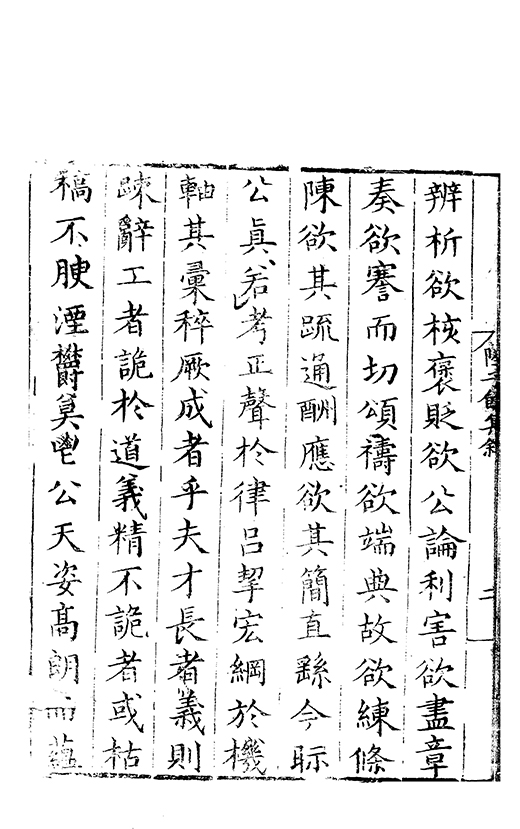 陸子餘集敘 二
辨析欲核褒貶欲公論利害欲盡章
奏欲謇而切頌禱欲端典故欲練條
陳欲其疏通酬應欲其簡直繇今眎
公眞若考正聲於律呂挈宏綱於機
軸其彙稡厥成者乎夫才長者義則
踈辭工者詭於道義精不詭者或枯
槁不腴湮欝莫鬯公天姿髙朗而蘊